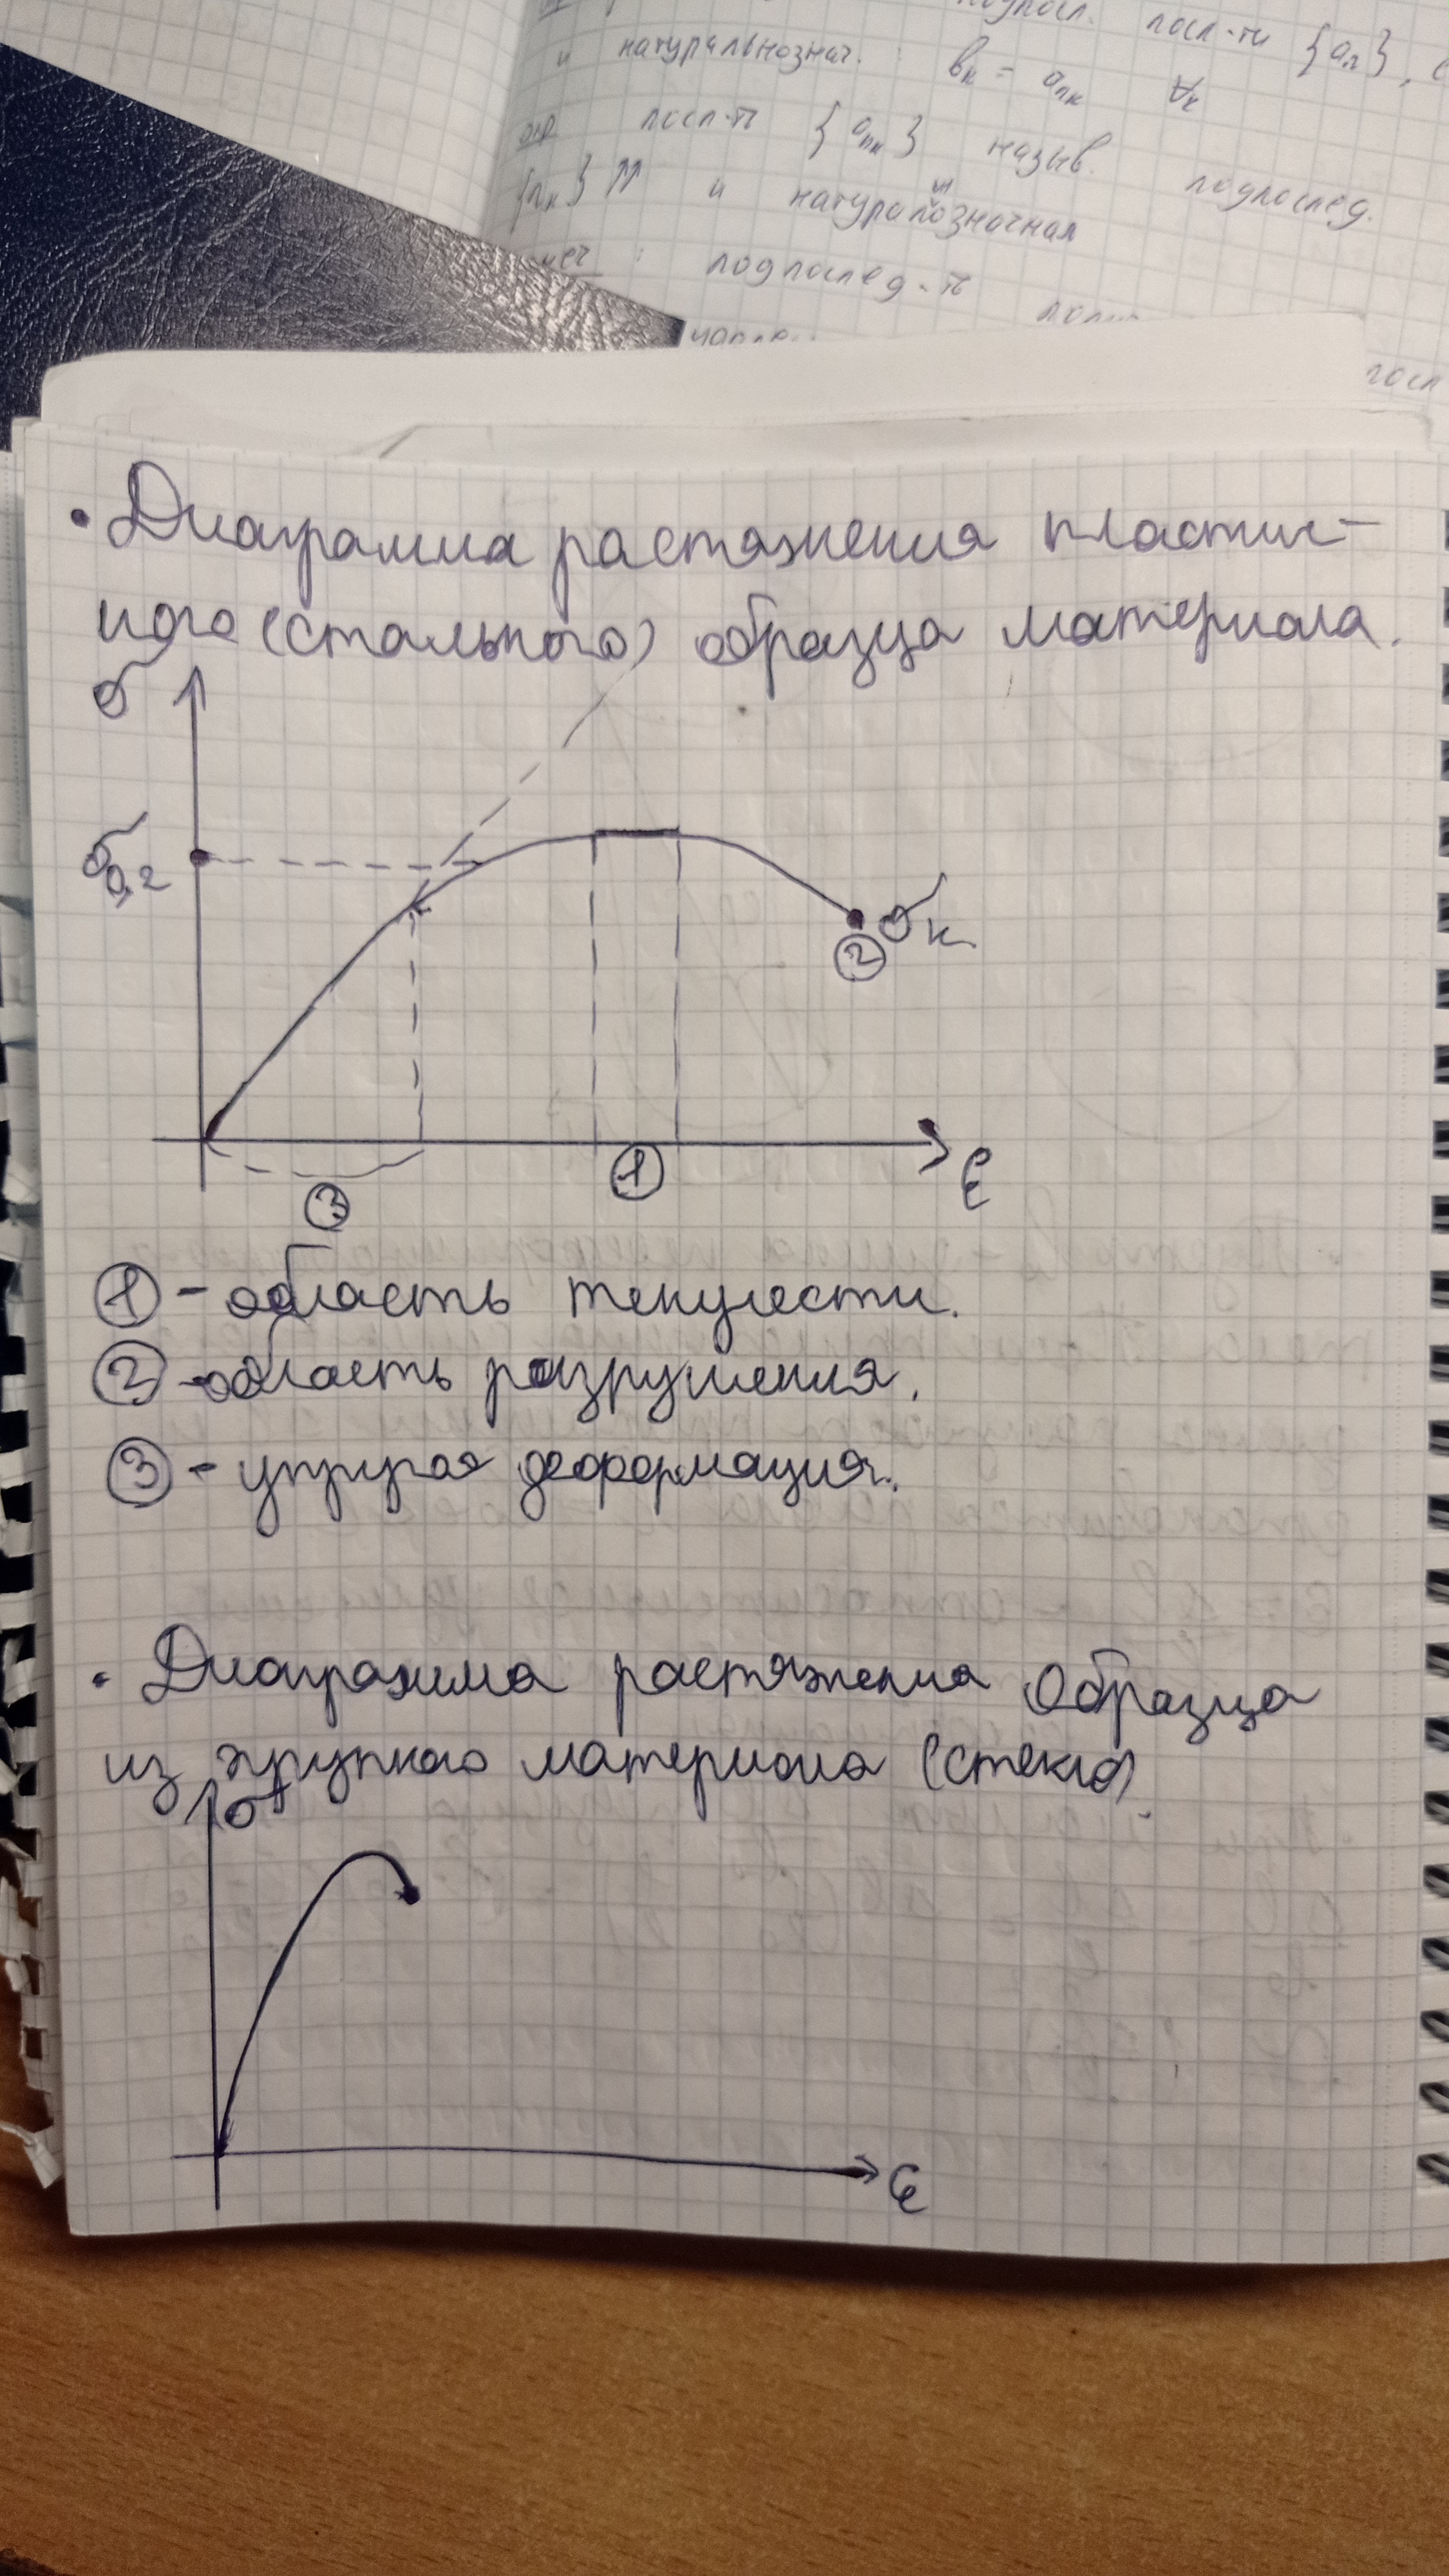 подпосл. посл-ти {aₙ},
и натуральнознач. : bₖ = aₙₖ ∀ₖ
посл-ть {aₙₖ} назыв. подпослед.
{nₖ} ⇈ и натуралнозначная
подпослед-ть
посл
• Диаграмма растяжения пластич-
ного (стального) образца материала.
σ
σ₀,₂
σₖ
②
③
①
ε
① - область текучести.
② - область разрушения.
③ - упругая деформация.
• Диаграмма растяжения образца
из хрупкого материала (стекло).
σ
ε